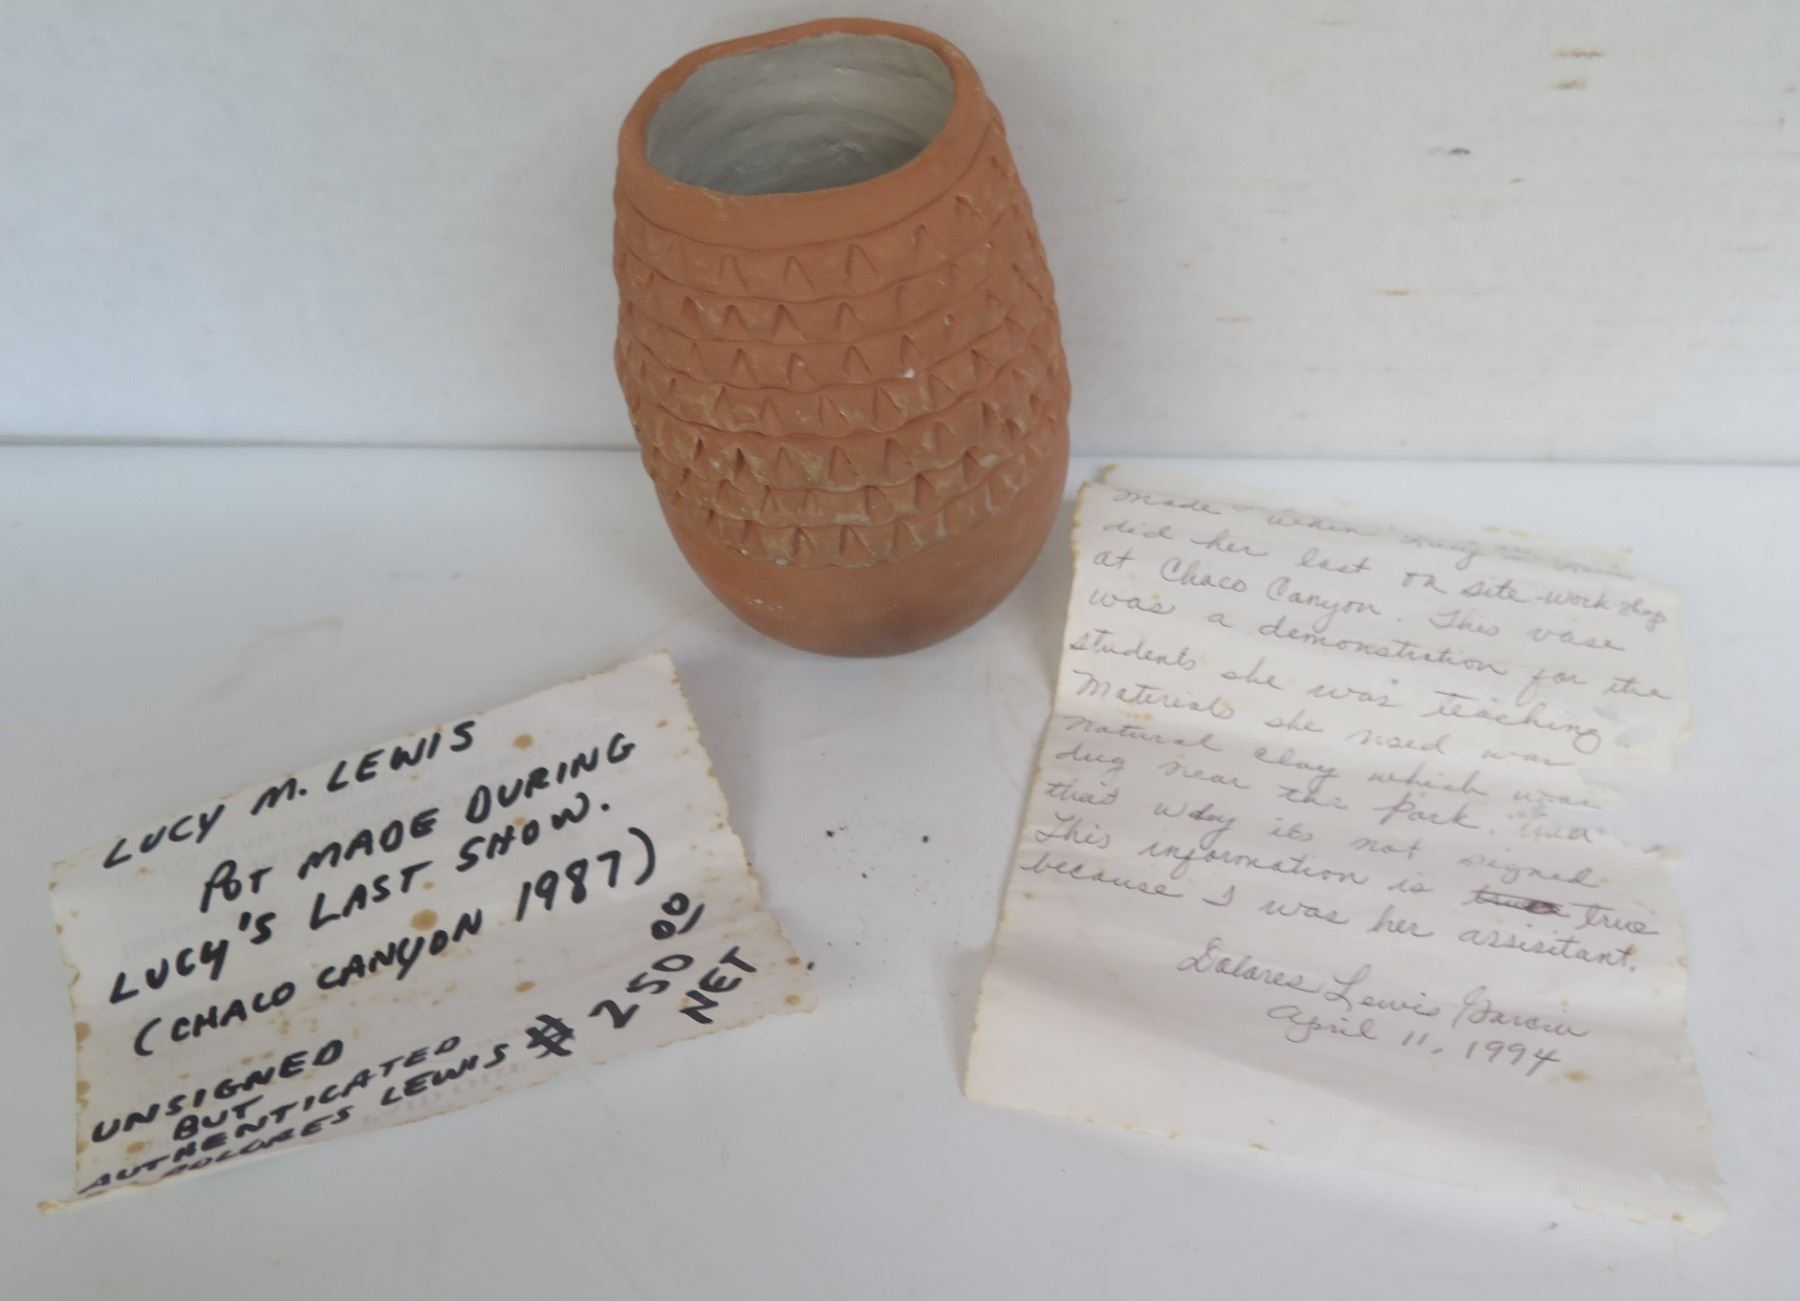 LUCY M. LEWIS
POT MADE DURING
LUCY'S LAST SHOW.
(CHACO CANYON 1987)
UNSIGNED
BUT
AUTHENTICATED
DOLORES LEWIS $250.00
NET
Made when
did her last on site work shop
at Chaco Canyon. This vase
was a demonstration for the
students she was teaching
Materials she used was
natural clay which was
dug near the Park. And
that way its not signed
This information is true
because I was her assisitant.
Dolores Lewis Garcia
April 11, 1994